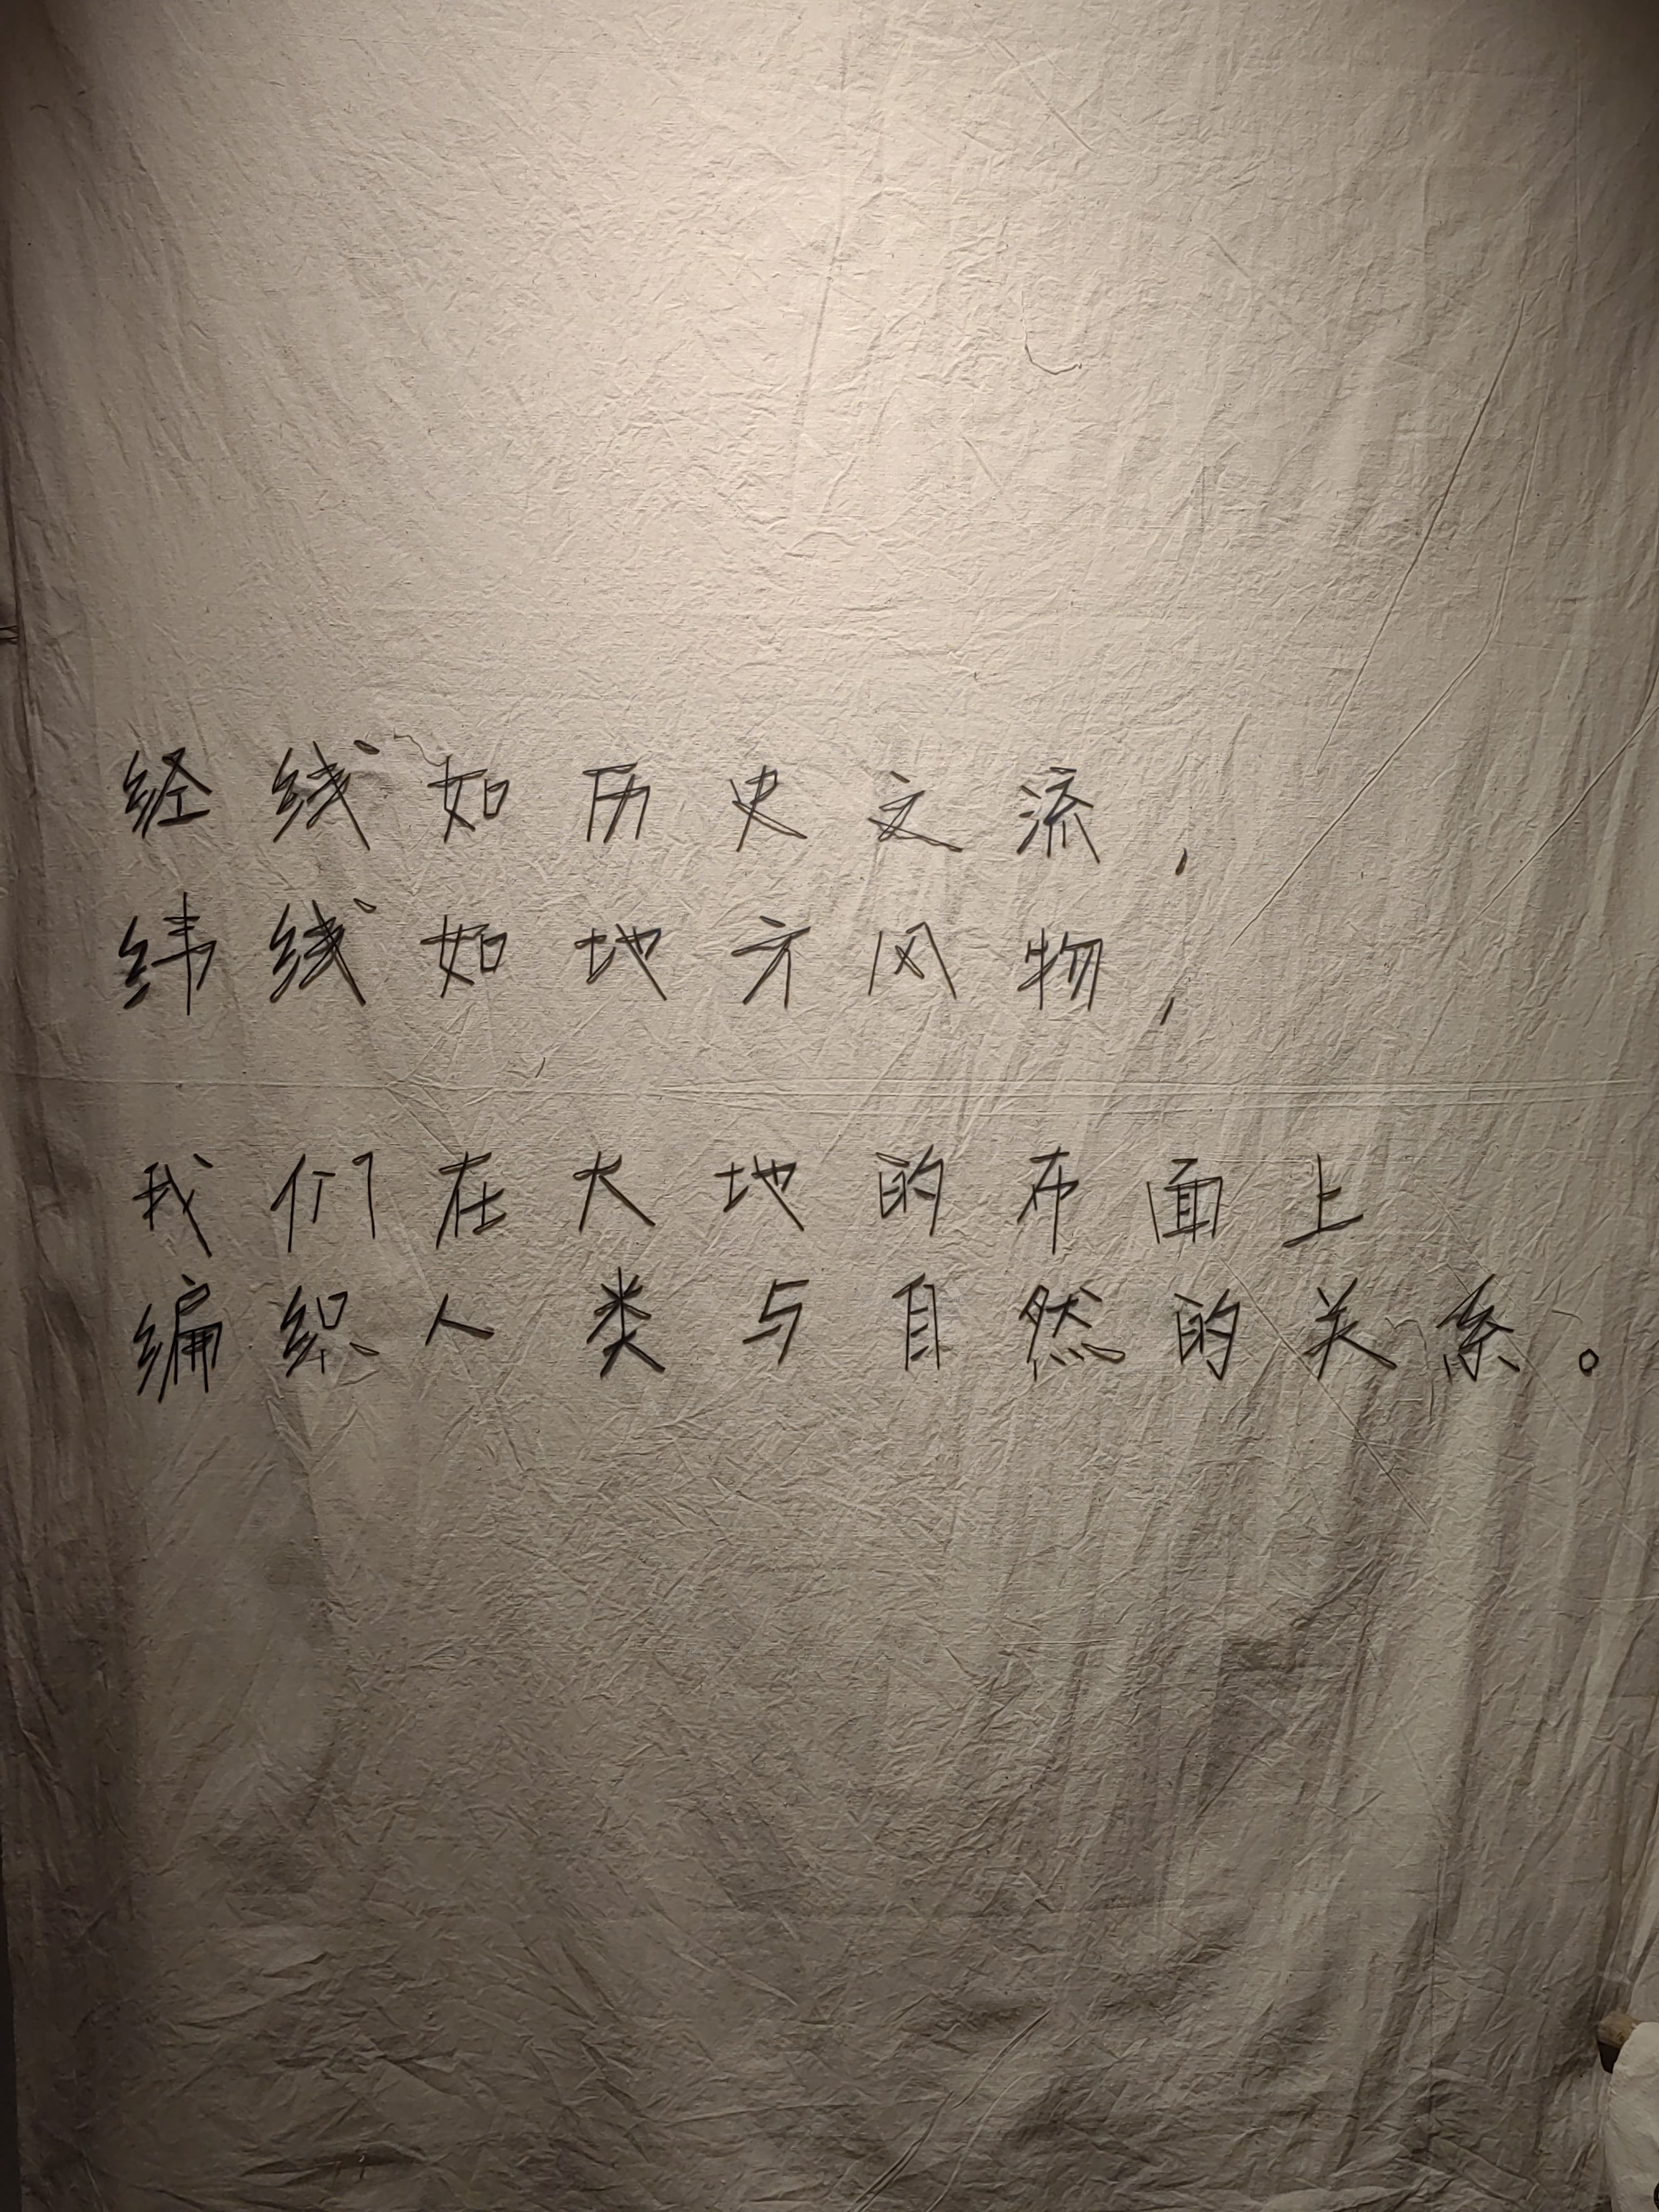 经线如历史之流，
纬线如地方风物，
我们在大地的布面上
编织人类与自然的关系。